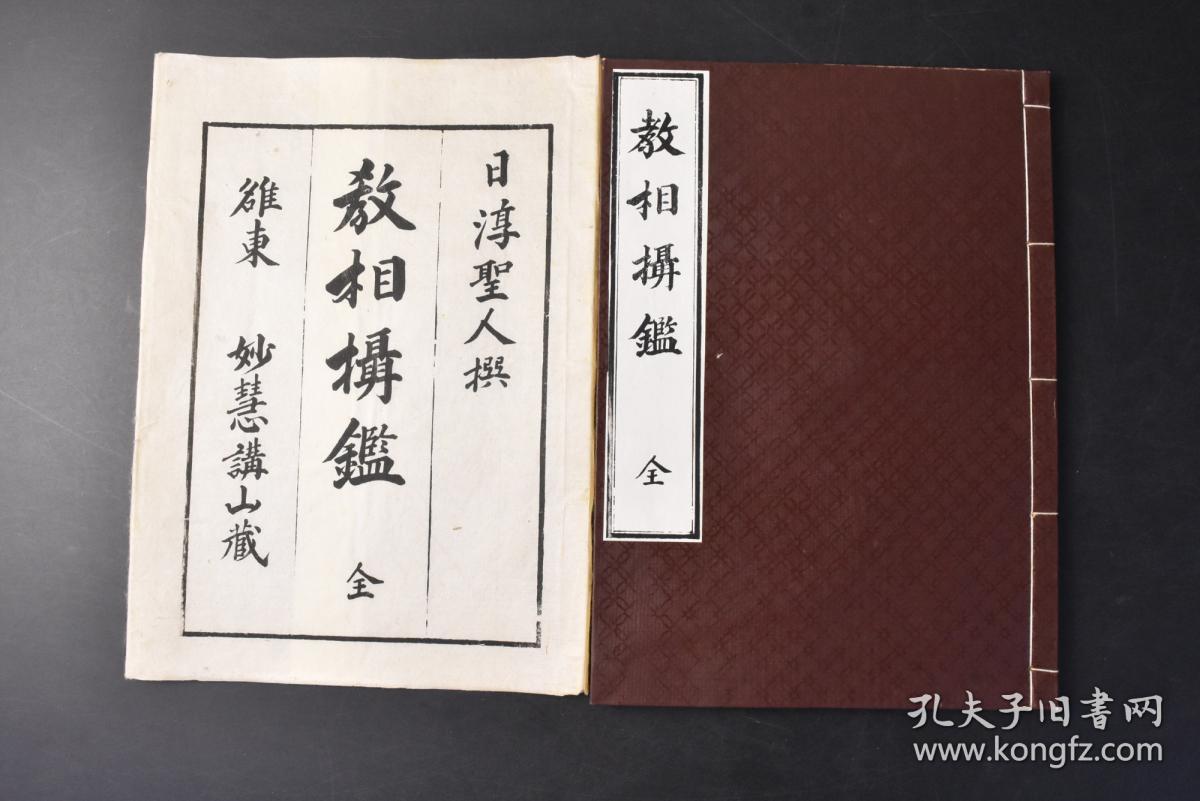 日淳聖人撰
教相攝鑑 全
雒東 妙慧講山藏
教相攝鑑 全
孔夫子旧書网
www.kongfz.com